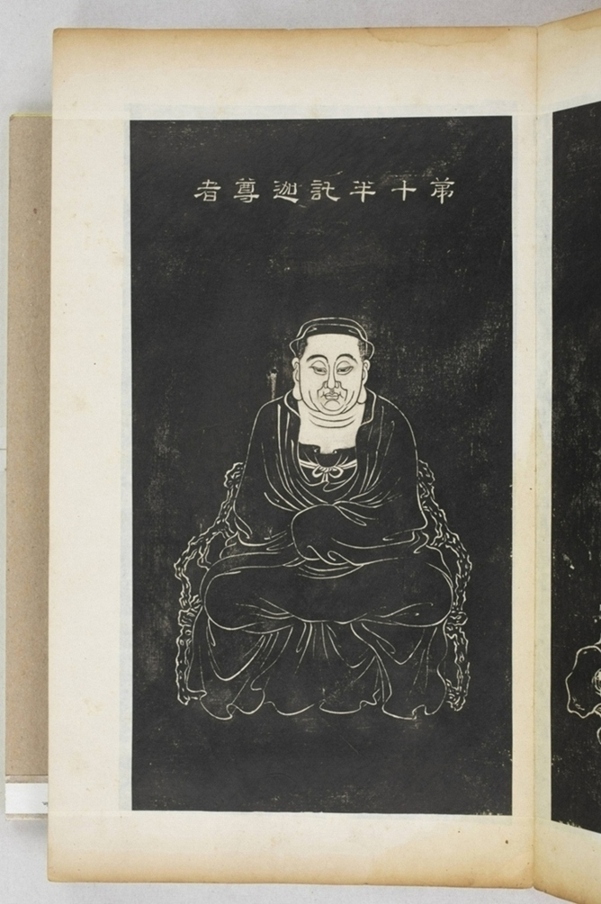 苐十半託迦尊者